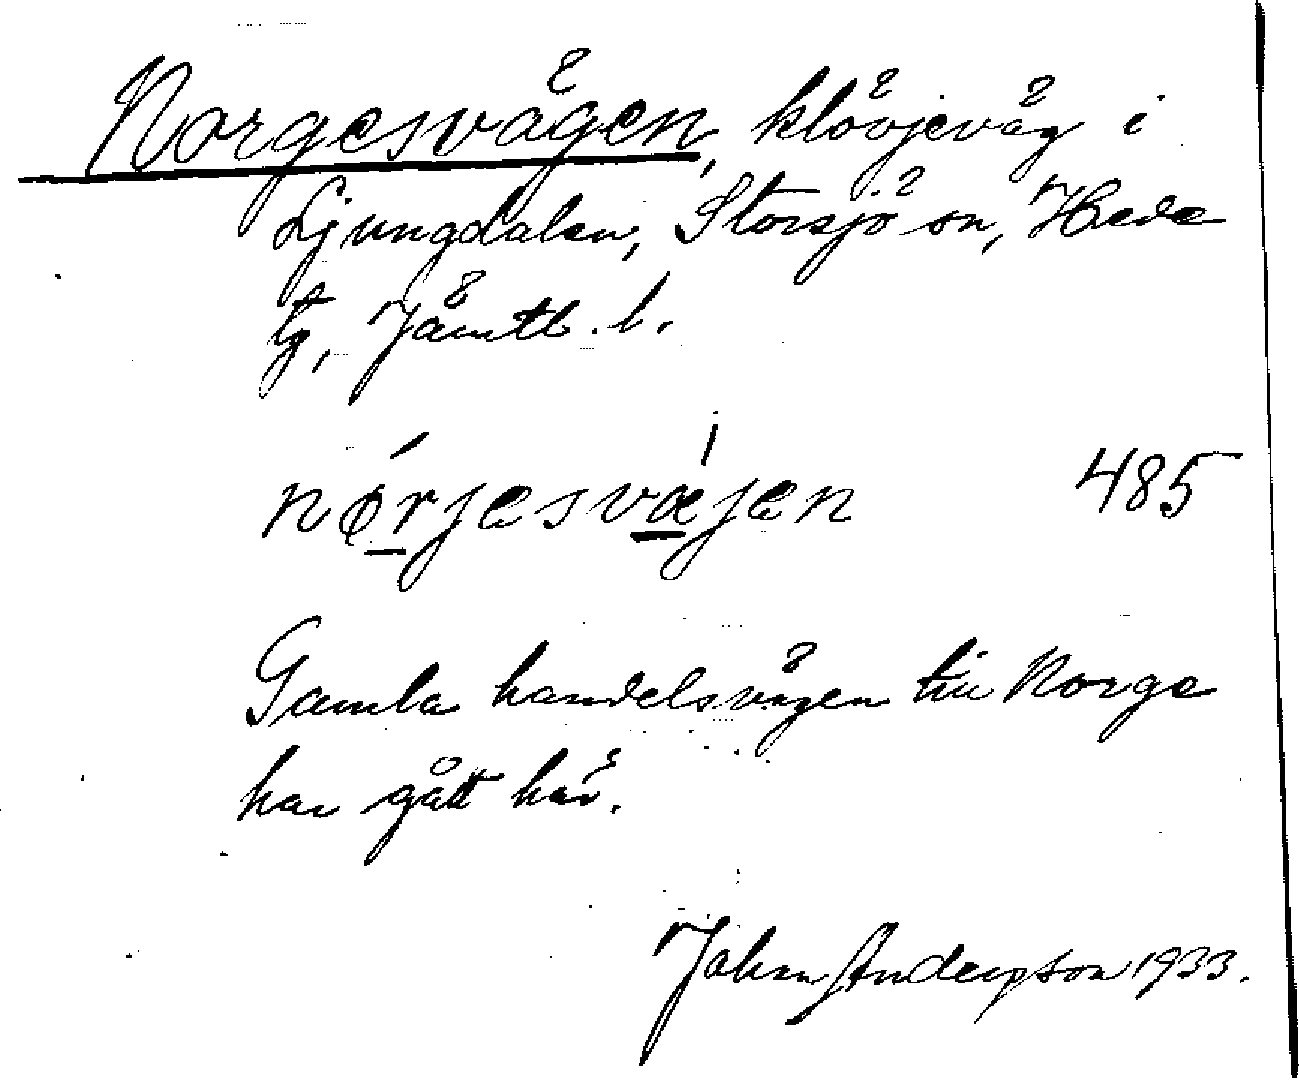 Norgesvägen, klövjeväg i
Ljungdalen, Storsjö sn, Hede
tg, Jämtl. l.
nørjesvæjen 485
Gamla handelsvägen till Norge
har gått här.
Johan Anderson 1933.